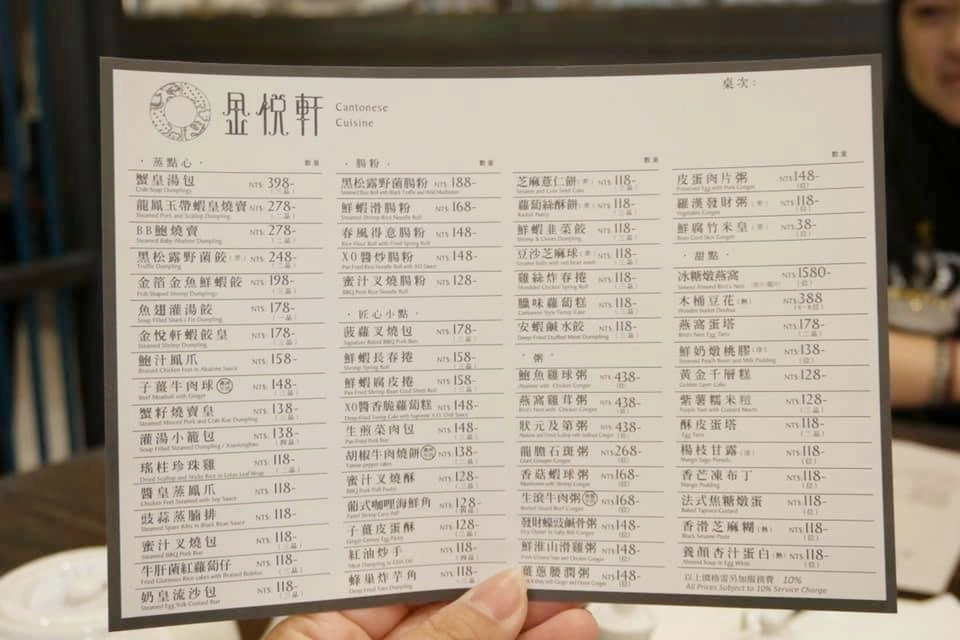 金悅軒
Cantonese
Cuisine
桌次:
·蒸點心· 數量
蟹皇湯包 NT$ 398-
Crab Soup Dumplings (三品)
龍鳳玉帶蝦皇燒賣 NT$ 278-
Steamed Pork and Scallop Dumpling
BB鮑燒賣 NT$ 278-
Steamed Baby Abalone Dumpling
黑松露野菌餃(素) NT$ 248-
Truffle Dumpling
金箔金魚鮮蝦餃 NT$ 198-
Fish Shaped Shrimp Dumplings
魚翅灌湯餃 NT$ 178-
Soup Filled Shark's Fin Dumpling
金悅軒蝦餃皇 NT$ 178-
Steamed Shrimp Dumpling
鮑汁鳳爪 NT$ 158-
Braised Chicken Feet in Abalone Sauce
子薑牛肉球 NT$ 148-
Beef Meatball with Ginger
蟹籽燒賣皇 NT$ 138-
Steamed Minced Pork and Crab Roe Dumpling
灌湯小籠包 NT$ 138-
Soup Filled Steamed Dumpling / Xiaolongbao
瑤柱珍珠雞 NT$ 118-
Dried Scallop and Sticky Rice in Lotus Leaf Wrap
醬皇蒸鳳爪 NT$ 118-
Chicken Feet Steamed with Soy Sauce
豉蒜蒸腩排 NT$ 118-
Steamed Spare Ribs in Black Bean Sauce
蜜汁叉燒包 NT$ 118-
Steamed BBQ Pork Bun
牛肝菌紅蘿蔔仔 NT$ 118-
Fried Glutinous Rice cakes with Braised Boletus
奶皇流沙包 NT$ 118-
Steamed Egg Yolk Custard Bun
·腸粉· 數量
黑松露野菌腸粉(素) NT$ 188-
Steamed Rice Roll with Black Truffle and Wild Mushroom
鮮蝦滑腸粉 NT$ 168-
Steamed Shrimp Rice Noodle Roll
春風得意腸粉 NT$ 148-
Rice Flour Roll with Fried Spring Roll
XO醬炒腸粉 NT$ 148-
Pan Fried Rice Noodle Roll with XO Sauce
蜜汁叉燒腸粉 NT$ 128-
BBQ Pork Rice Noodle Roll
·匠心小點·
菠蘿叉燒包 NT$ 178-
Signature Baked BBQ Pork Bun
鮮蝦長春捲 NT$ 158-
Shrimp Spring Roll
鮮蝦腐皮捲 NT$ 158-
Pan Fried Shrimp Bean Curd Sheet Roll
XO醬香脆蘿蔔糕 NT$ 148-
Deep-Fried Turnip Cake with Supreme X.O. Chili Sauce
生煎菜肉包 NT$ 148-
Pan Fried Pork Bun
胡椒牛肉燒餅 NT$ 138-
蜜汁叉燒酥 NT$ 128-
BBQ Pork Puff Pastry
葡式咖哩海鮮角 NT$ 128-
子薑皮蛋酥 NT$ 128-
Ginger Century Egg Pastry
紅油炒手 NT$ 118-
Meat Dumpling in Chili Oil
蜂巢炸芋角 NT$ 118-
Deep Fried Taro Dumpling
數量
芝麻薏仁餅(素) NT$ 118-
蘿蔔絲酥餅(素) NT$ 118-
Radish Pastry
鮮蝦韭菜餃 NT$ 118-
Shrimp & Chives Dumpling
豆沙芝麻球(素) NT$ 118-
Sesame balls with red bean paste
雞絲炸春捲 NT$ 118-
Shredded Chicken Spring Roll
臘味蘿蔔糕 NT$ 118-
Cantonese Style Turnip Cake
安蝦鹹水餃 NT$ 118-
Deep Fried Stuffed Meat Dumpling
·粥·
鮑魚雞球粥 NT$ 438-
Abalone with Chicken Congee (位)
燕窩雞茸粥 NT$ 438-
Bird's Nest with Chicken Congee
狀元及第粥 NT$ 438-
龍膽石斑粥 NT$ 268-
Giant Grouper Congee (位)
香菇蝦球粥 NT$ 168-
Mushroom with Shrimp Congee (位)
生滾牛肉粥 NT$ 168-
Boiled Sliced Beef Congee (位)
發財蠔豉鹹件粥 NT$ 148-
鮮淮山滑雞粥 NT$ 148-
薑蔥腰潤粥 NT$ 148-
數量
皮蛋肉片粥 NT$ 148-
Preserved Egg with Pork Congee (位)
羅漢發財粥(素) NT$ 118-
Vegetable Congee (位)
鮮腐竹米皇(素) NT$ 38-
Bean Curd Skin Congee (位)
·甜點·
冰糖燉燕窩 NT$ 1580-
Stewed Almond Bird's Nest
木桶豆花(熱) NT$ 388
Wooden bucket Douhua
燕窩蛋塔 NT$ 178-
Bird's Nest Egg Tarts (二品)
鮮奶燉桃膠(冷) NT$ 138-
Steamed Peach Resin and Milk Pudding (位)
黃金千層糕 NT$ 128-
Golden Layer Cake
紫薯糯米糍 NT$ 128-
Purple Yam with Custard Mochi
酥皮蛋塔 NT$ 118-
Egg Tarts
楊枝甘露(冷) NT$ 118-
Mango Sago Pomelo (位)
香芒凍布丁 NT$ 118-
Mango Pudding (位)
法式焦糖燉蛋 NT$ 118-
香滑芝麻糊(熱) NT$ 118-
Black Sesame Paste (位)
養顏杏汁蛋白(熱) NT$ 118-
Almond Soup in Egg White (位)
以上價格需另加服務費 10%
All Prices Subject to 10% Service Charge